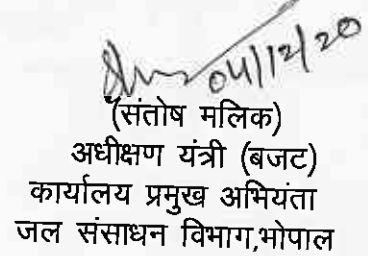 04/12/20
(संतोष मलिक)
अधीक्षण यंत्री (बजट)
कार्यालय प्रमुख अभियंता
जल संसाधन विभाग,भोपाल